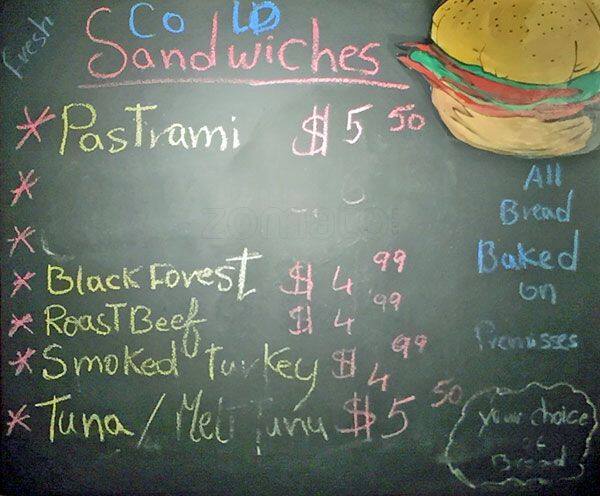 Fresh
COLD
Sandwiches
* Pastrami $5 50
*
*
* Black Forest $4 99
* Roast Beef $4 99
* Smoked turkey $4 99
* Tuna / Melt Tuna $5 50
All
Bread
Baked
on
Premisses
your choice
of
Bread
zomato